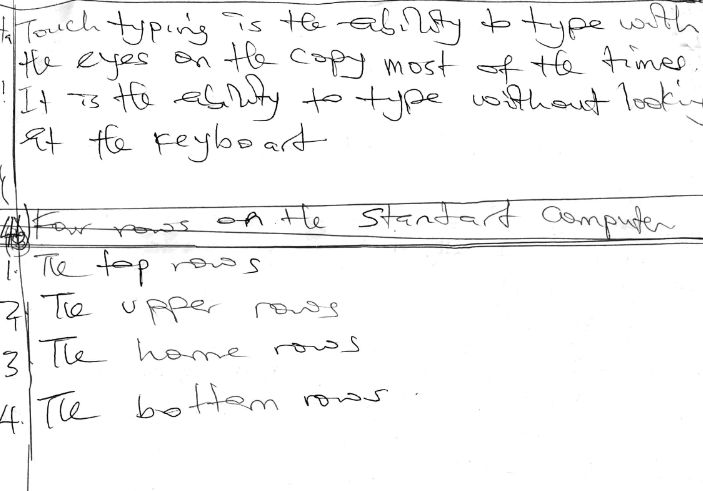 Touch typing is the ability to type with
the eyes on the copy most of the times.
It is the ability to type without looki
at the keyboard
Four rows on the Standart Computer
1. The top rows
2 The upper rows
3 The home rows
4. The bottom rows.